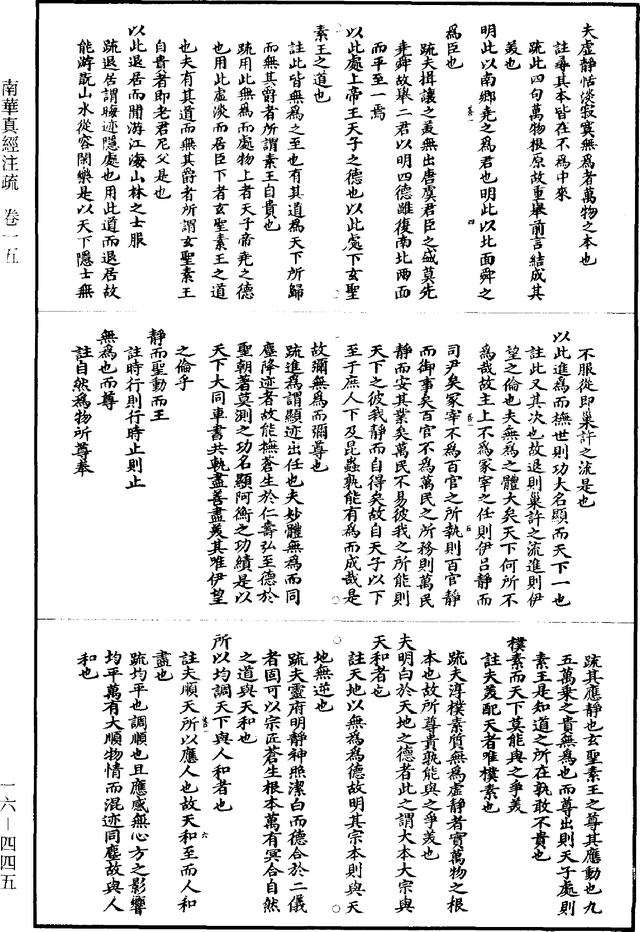 南華真經注疏　卷一五
夫虛靜恬淡寂寞無為者萬物之本也
註尋其本皆在不為中來
疏此四句萬物根原故重舉前言結成其
美也
明此以南鄉堯之為君也明此以北面舜之
為臣也
疏夫揖讓之美無出唐虞君臣之盛莫先
堯舜故舉二君以明四德雖復南北兩面
而平至一焉
以此處上帝王天子之德也以此處下玄聖
素王之道也
註此皆無為之至也有其道為天下所歸
而無其爵者所謂素王自貴也
疏用此無為而處物上者天子帝堯之德
也用此虛淡而居臣下者玄聖素王之道
也夫有其道而無其爵者所謂玄聖素王
自貴者即老君尼父是也
以此退居而閒游江海山林之士服
疏退居謂晦迹隱處也用此道而退居故
能游翫山水從容閑樂是以天下隱士無
不服從即巢許之流是也
以此進為而撫世則功大名顯而天下一也
註此又其次也故退則巢許之流進則伊
望之倫也夫無為之體大矣天下何所不
為哉故主上不為冢宰之任則伊呂靜而
司尹矣冢宰不為百官之所執則百官靜
而御事矣百官不為萬民之所務則萬民
靜而安其業矣萬民不易彼我之所能則
天下之彼我靜而自得矣故自天子以下
至于庶人下及昆蟲孰能有為而成哉是
故彌無為而彌尊也
疏進為謂顯迹出仕也夫妙體無為而同
塵降迹者故能撫蒼生於仁壽弘至德於
聖朝著莫測之功名顯阿衡之功績是以
天下大同車書共軌盡善盡美其唯伊望
之倫乎
靜而聖動而王
註時行則行時止則止
無為也而尊
註自然為物所尊奉
疏其應靜也玄聖素王之尊其應動也九
五萬乘之貴無為也而尊出則天子處則
素王是知道之所在孰敢不貴也
樸素而天下莫能與之爭美
註夫美配天者唯樸素也
疏夫淳樸素質無為虛靜者實萬物之根
本也故所尊貴孰能與之爭美也
夫明白於天地之德者此之謂大本大宗與
天和者也
註天地以無為為德故明其宗本則與天
地無逆也
疏夫靈府明靜神照潔白而德合於二儀
者固可以宗匠蒼生根本萬有冥合自然
之道與天和也
所以均調天下與人和者也
註夫順天所以應人也故天和至而人和
盡也
疏均平也調順也且應感無心方之影響
均平萬有大順物情而混迹同塵故與人
和也
一六—四四五